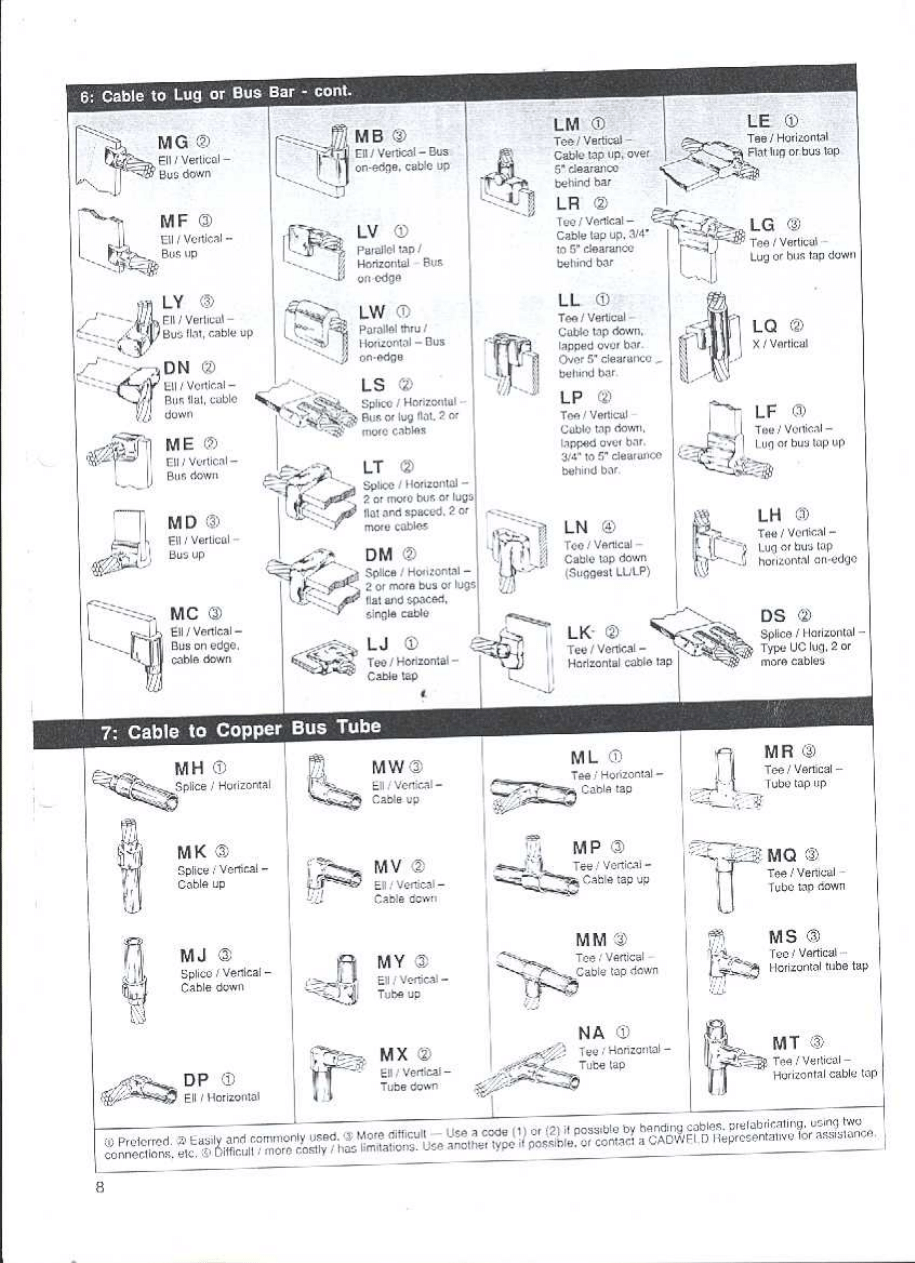 6: Cable to Lug or Bus Bar - cont.
MG ②
Ell / Vertical –
Bus down
MF ③
Ell / Vertical –
Bus up
LY ③
Ell / Vertical –
Bus flat, cable up
DN ②
Ell / Vertical –
Bus flat, cable
down
ME ②
Ell / Vertical –
Bus down
MD ③
Ell / Vertical –
Bus up
MC ③
Ell / Vertical –
Bus on edge,
cable down
MB ③
Ell / Vertical – Bus
on-edge, cable up
LV ①
Parallel tap /
Horizontal – Bus
on-edge
LW ①
Parallel thru /
Horizontal – Bus
on-edge
LS ②
Splice / Horizontal –
Bus or lug flat, 2 or
more cables
LT ②
Splice / Horizontal –
2 or more bus or lugs
flat and spaced, 2 or
more cables
DM ②
Splice / Horizontal –
2 or more bus or lugs
flat and spaced,
single cable
LJ ①
Tee / Horizontal –
Cable tap
LM ①
Tee / Vertical –
Cable tap up, over
5" clearance
behind bar
LR ②
Tee / Vertical –
Cable tap up, 3/4"
to 5" clearance
behind bar
LL ①
Tee / Vertical –
Cable tap down,
lapped over bar.
Over 5" clearance
behind bar.
LP ②
Tee / Vertical –
Cable tap down,
lapped over bar.
3/4" to 5" clearance
behind bar.
LN ④
Tee / Vertical –
Cable tap down
(Suggest LL/LP)
LK ②
Tee / Vertical –
Horizontal cable tap
LE ①
Tee / Horizontal
Flat lug or bus tap
LG ③
Tee / Vertical –
Lug or bus tap down
LQ ②
X / Vertical
LF ③
Tee / Vertical –
Lug or bus tap up
LH ③
Tee / Vertical –
Lug or bus tap
horizontal on-edge
DS ②
Splice / Horizontal –
Type UC lug, 2 or
more cables
7: Cable to Copper Bus Tube
MH ①
Splice / Horizontal
MK ③
Splice / Vertical –
Cable up
MJ ③
Splice / Vertical –
Cable down
DP ①
Ell / Horizontal
MW ③
Ell / Vertical –
Cable up
MV ②
Ell / Vertical –
Cable down
MY ③
Ell / Vertical –
Tube up
MX ②
Ell / Vertical –
Tube down
ML ①
Tee / Horizontal –
Cable tap
MP ③
Tee / Vertical –
Cable tap up
MM ③
Tee / Vertical –
Cable tap down
NA ①
Tee / Horizontal –
Tube tap
MR ③
Tee / Vertical –
Tube tap up
MQ ③
Tee / Vertical –
Tube tap down
MS ③
Tee / Vertical –
Horizontal tube tap
MT ③
Tee / Vertical –
Horizontal cable tap
① Preferred. ② Easily and commonly used. ③ More difficult — Use a code (1) or (2) if possible by bending cables, prefabricating, using two
connections, etc. ④ Difficult / more costly / has limitations. Use another type if possible, or contact a CADWELD Representative for assistance.
8